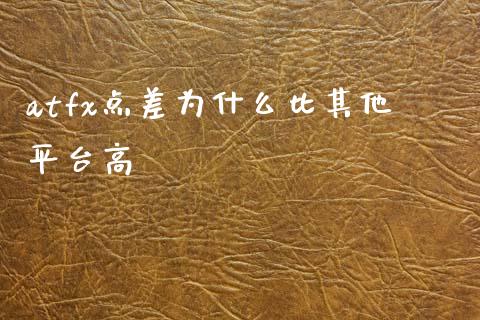 atfx点差为什么比其他
平台高